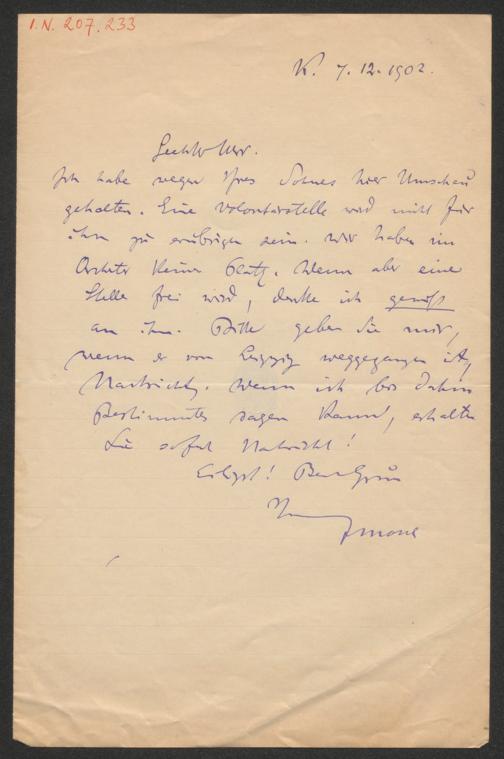 I.N. 207.233
K. 7.12.1902.
Geehrter Herr.
Ich habe wegen Ihres Sohnes hier Umschau
gehalten. Eine Volontärstelle wird nicht für
ihn zu erübrigen sein. Wir haben im
Orchester keinen Platz. Wenn aber eine
Stelle frei wird, denke ich gewiß
an ihn. Bitte geben Sie mir,
wenn er von Leipzig weggegangen ist,
Nachricht. Wenn ich bis dahin
Bestimmtes sagen kann, erhalten
Sie sofort Nachricht!
Eiligst! Besten Gruß